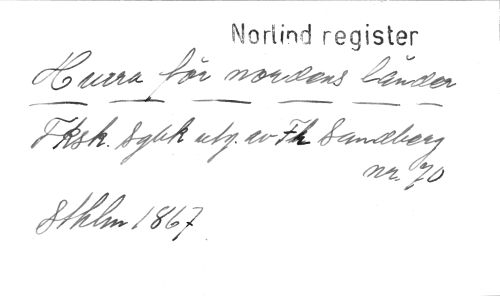 Norlind register
Hurra för nordens länder
Fksk. Sgbk utg. av Fh Sandberg
nr. 70
Sthlm 1867.